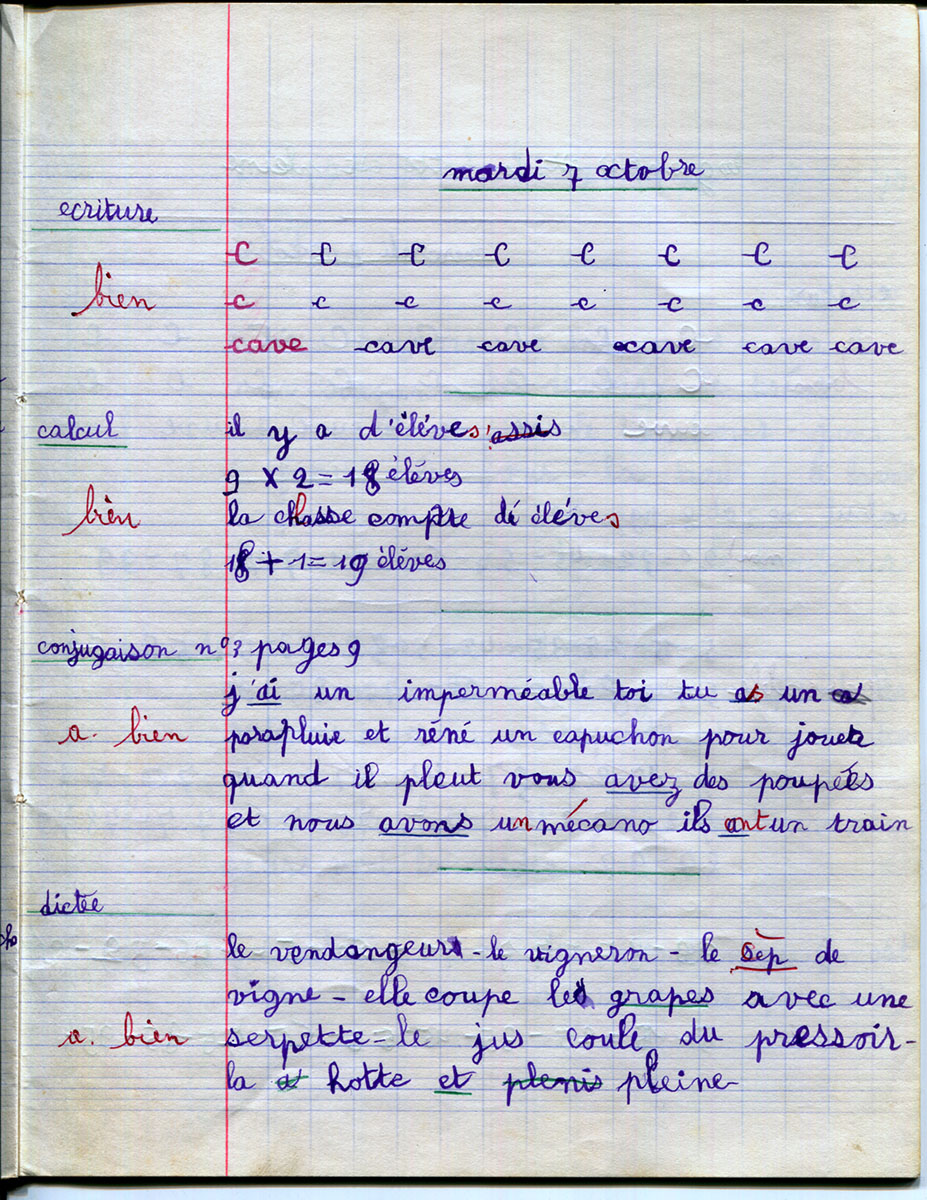 mardi 7 octobre
ecriture
C C C C C C C C
bien
c c c c c c c c
cave cave cave cave cave cave
calcul
il y a d'élèves assis
9 X 2 = 18 élèves
bien
la chasse compte dé élèves
18 + 1 = 19 élèves
conjugaison n°3 pages 9
j'ai un imperméable toi tu as un
a. bien
parapluie et réné un capuchon pour jouer
quand il pleut vous avez des poupées
et nous avons un mécano ils ont un train
dictée
le vendangeur - le vigneron - le cèp de
vigne - elle coupe les grapes avec une
a. bien
serpette - le jus coule du pressoir -
la hotte et plenis pleine -